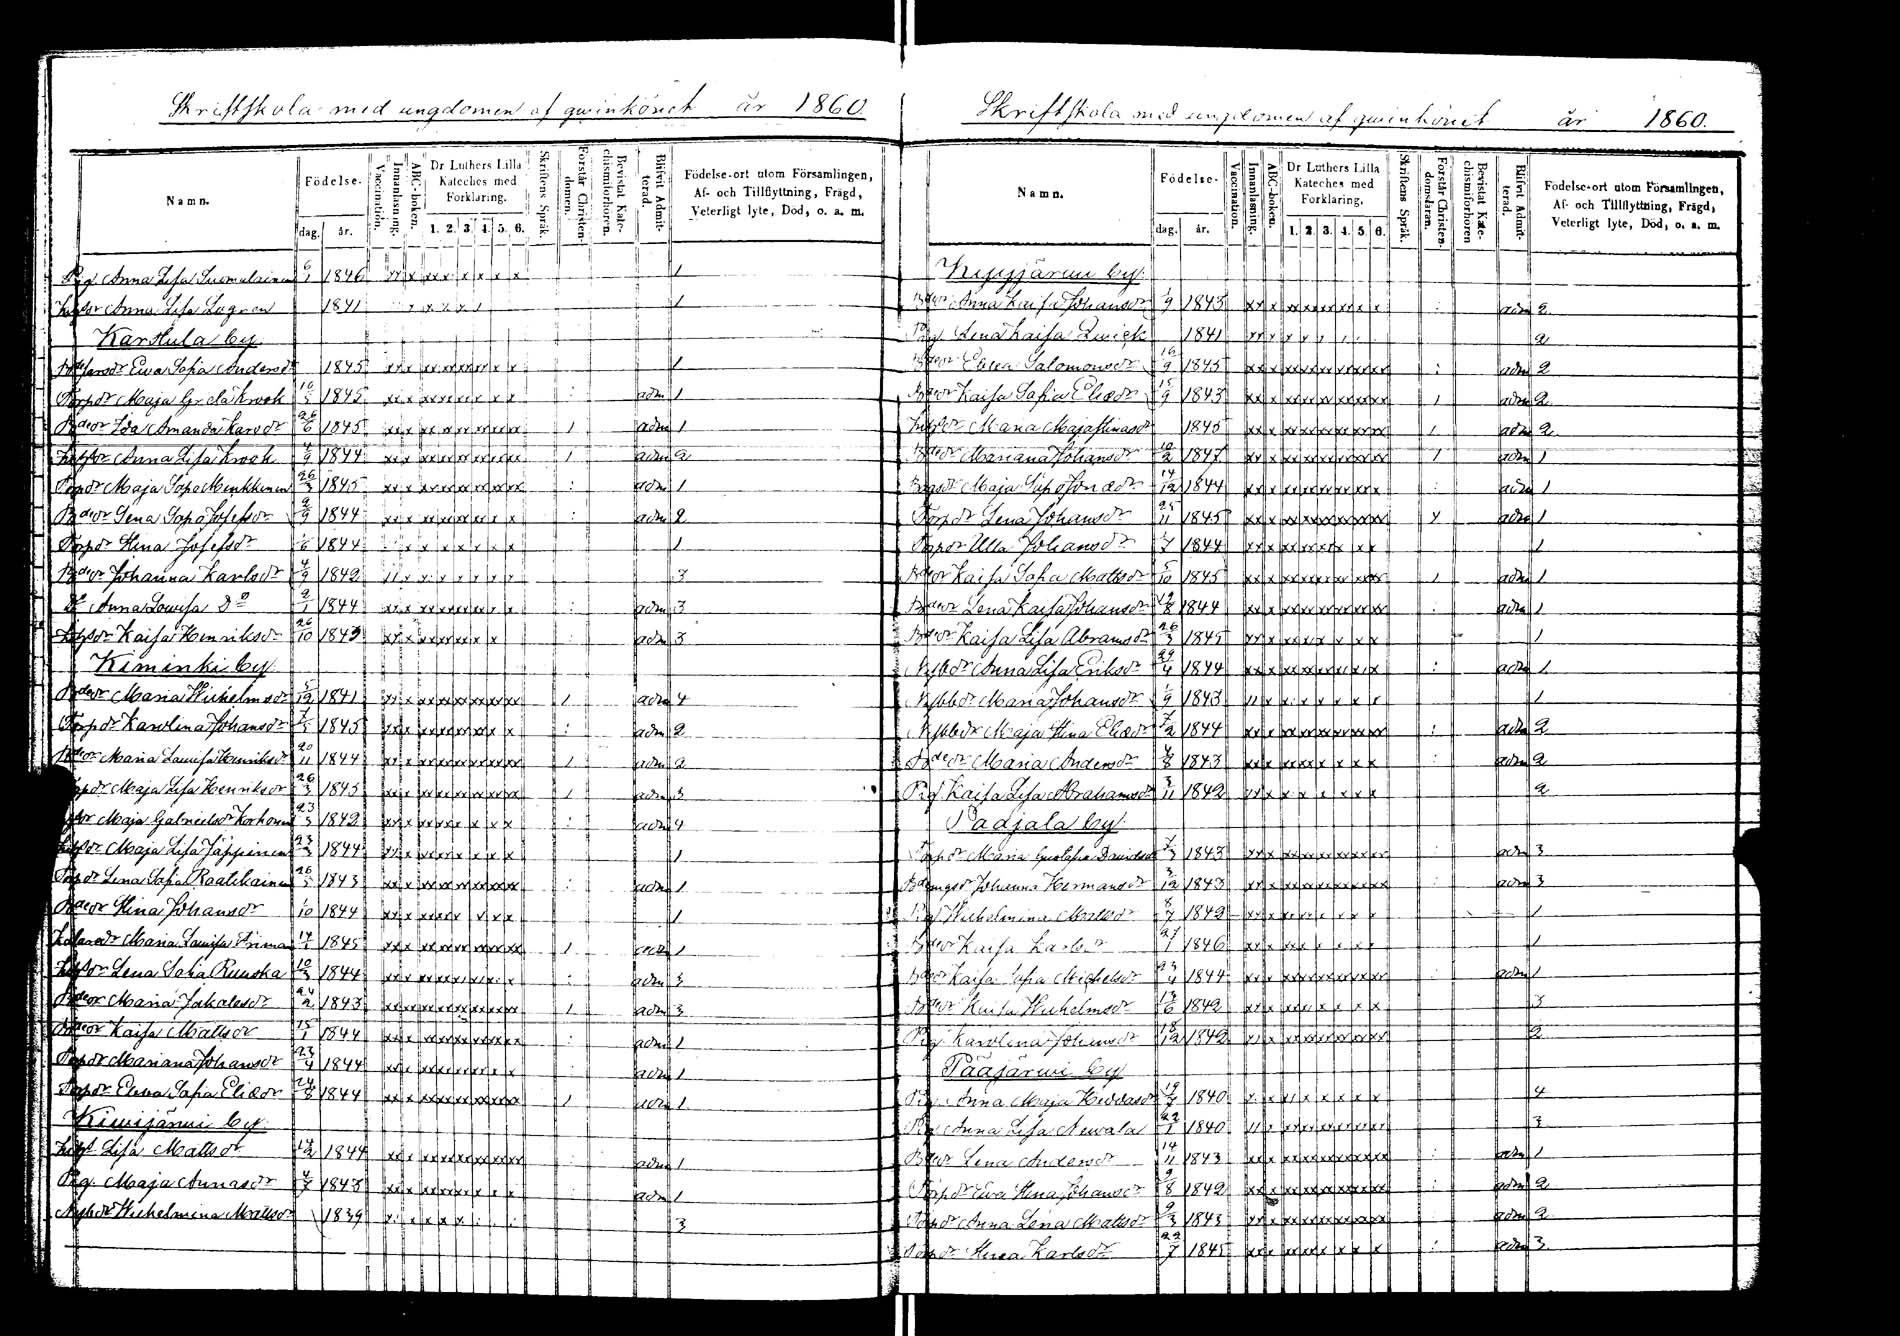 Skriftskola med ungdomen af qwinkönet år 1860.
Namn. Födelse- dag. år. Vaccination. Innanläsning. ABC-boken. Dr Luthers Lilla Kateches med Förklaring. 1. 2. 3. 4. 5. 6. Skriftens Språk. Förstår Christen-domen. Bevistat Kate-chismiförhören. Blifvit Admit-terad. Födelse-ort utom Församlingen, Af- och Tillflyttning, Frägd, Veterligt lyte, Död, o. a. m.
Pig. Anna Lisa Suomalainen 6/1 1846 1
Anna Lisa Logren 1841 1
Karstula by
Ewa Sofia Andersdr 1845 1
Torpdr Maja Greta Krook 1845 adm 1
Bdedr Ida Amanda Karlsdr 26/6 1845 1 adm 1
Anna Lisa Krook 4/9 1844 1 adm 2
Torpdr Maja Sofia Minkkinen 26/3 1845 adm 1
Bdedr Lena Sofia Josefsdr 9/9 1844 adm 2
Torpdr Stina Josefsdr 1/6 1844 1
Bdedr Johanna Karlsdr 4/9 1842 3
Do Anna Lowisa Do 9/1 1844 adm 3
Kaisa Henriksdr 26/10 1843 adm 3
Kiminki by
Bdedr Maria Wilhelmsdr 5/12 1841 1 adm 4
Torpdr Karolina Johansdr 1845 adm 2
Bdedr Maria Lowisa Henriksdr 20/11 1844 1 adm 2
Maja Lisa Henriksdr 26/3 1845 1 adm 3
Maja Gabrielsdr Korhonen 23/3 1842 adm 4
Maja Lisa Jäppinen 23/3 1844 1
Torpdr Lena Sofia Raatikainen 26/5 1843 adm 1
Bdedr Stina Johansdr 1/10 1844 1
Maria Lowisa Friman 1845 1 adm 1
Lena Sofia Ruuska 10/3 1844 adm 3
Bdedr Maria Jakobsdr 24/2 1843 1 adm 3
Bdedr Kaisa Mattsdr 15/1 1844 adm 1
Torpdr Mariana Johansdr 23/4 1844 adm 1
Torpdr Ewa Sofia Eliædr 24/8 1844 1 adm 1
Kimijärwi by
Lisa Mattsdr 14/2 1844 adm 1
Pig. Maja Annasdr 4/7 1843 adm 1
Wilhelmina Mattsdr 1839 3
Skriftskola med ungdomen af qwinkönet år 1860.
Namn. Födelse- dag. år. Vaccination. Innanläsning. ABC-boken. Dr Luthers Lilla Kateches med Förklaring. 1. 2. 3. 4. 5. 6. Skriftens Språk. Förstår Christen-domsläran. Bevistat Kate-chismiförhören Blifvit Admit-terad. Födelse-ort utom Församlingen, Af- och Tillflyttning, Frägd, Veterligt lyte, Död, o. a. m.
Kyyjärwi by
Bdedr Anna Kaisa Johansdr 1/9 1843 adm 2
Pig. Lena Kaisa Qwick 1841 2
Bdedr Salomonsdr 16/9 1845 adm 2
Bdedr Kaisa Sofia Eliædr 15/9 1843 1 adm 2
Maria Majastinasdr 1845 1 adm 2
Bdedr Mariana Johansdr 10/2 1847 1 adm 1
Maja Sofia 14/12 1844 adm 1
Torpdr Lena Johansdr 25/11 1845 adm 1
Torpdr Ulla Johansdr 1/7 1844 1
Bdedr Kaisa Sofia Mattsdr 5/10 1845 1 adm 1
Bdedr Lena Kaisa Johansdr 12/8 1844 adm 1
Bdedr Kaisa Lisa Abramsdr 26/3 1845 1
Anna Lisa Eriksdr 29/4 1844 adm 1
Maria Johansdr 1/9 1843 1
Maja Stina Eliædr 7/2 1844 adm 2
Bdedr Maria Andersdr 4/8 1843 adm 2
Pig. Kaisa Lisa Abrahamsdr 3/11 1842 2
Padjala by
Torpdr Maria Gustafa Davidsdr 7/3 1843 adm 3
Johanna Hermansdr 3/12 1843 adm 3
Pig. Wilhelmina Mattsdr 8/7 1842 1
Bdedr Kaisa Karlsdr 27/1 1846 1
Bdedr Kaisa Sofia Michelsdr 23/4 1844 adm 1
Bdedr Kaisa Wilhelmsdr 13/6 1842 3
Pig. Karolina Johansdr 18/12 1842 2
Pääjärwi by
Pig. Anna Maja 19/7 1840 4
Pig. Anna Lisa Newala 22/1 1840 3
Bdedr Lena Andersdr 14/11 1843 adm 1
Torpdr Ewa Stina Johansdr 9/8 1842 adm 2
Torpdr Anna Lena Mattsdr 9/3 1843 adm 2
Torpdr Stina Karlsdr 22/7 1845 adm 3